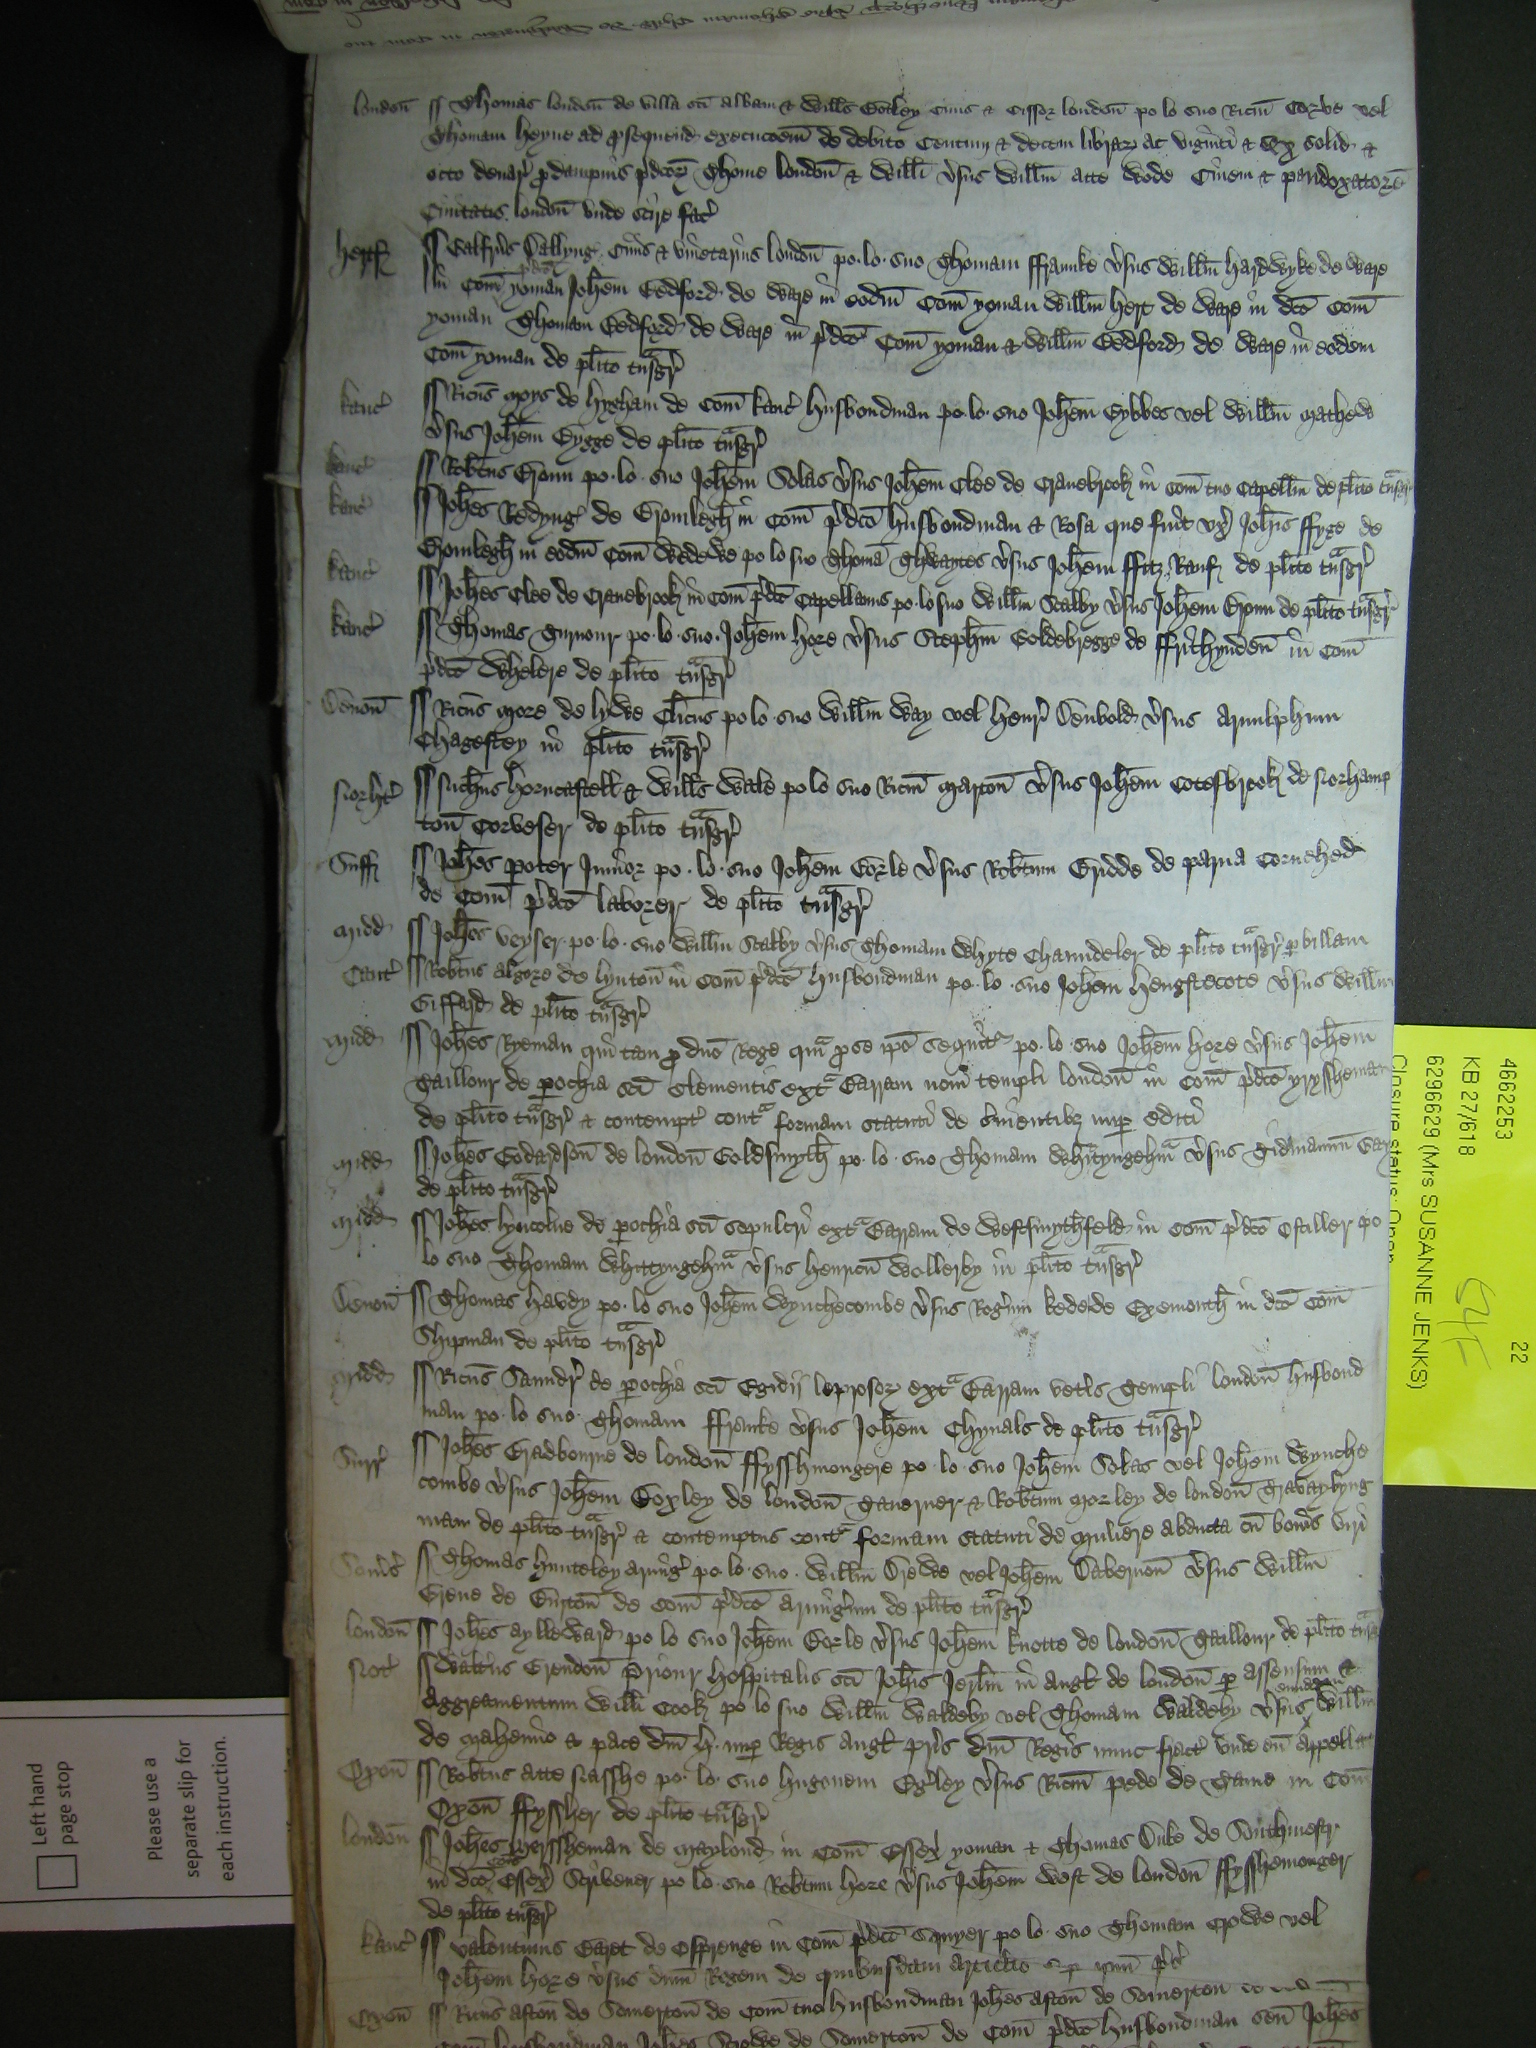 londoñ Thomas londoñ de villa sci Albani & Wills Gotley Civis & Cissor londoñ po lo suo Ricm Corve vel
Thomam heyne ad psequend execucoem de debito Centum & decem librar ac viginti & solid &
octo denar p dampnis pdcor Thome londoñ & Willi vsus Willm atte Wode Civem & pandoxatore
Civitatis londoñ unde scire fac
hertf Galfrus Dallyng Civis & vinetarius londoñ po lo suo Thomam ffranke vsus Willm hardwyke de Ware
in Com pdco yoman Johem Bedford de Ware in eodm Com yoman Willm hert de Ware in dco Com
yoman Thomam Bedford de Ware in pdco Com yoman & Willm Bedford de Ware in eodem
Com yoman de plito tnsgr
kanc Ricus moys de hygham de Com kanc husbondman po lo suo Johem Gybbes vel Willm Mathew
vsus Johem Gygge de plito tnsgr
kanc Robtus Bronn po lo suo Johem Solas vsus Johem Clee de Cranebrook in Com tuo Capellm de plito tnsgr
kanc Johes Redyng de Bromlegh in Com pdco husbondman & Rosa que fuit ux Johis ffyge de
Bromlegh in eodm Com Wedewe po lo suo Thoma Thwaytes vsus Johem ffitz Rauf de plito tnsgr
kanc Johes Clee de Cranebrook in Com pdco Capellanus po lo suo Willm Stalby vsus Johem Bronn de plito tnsgr
kanc Thomas Gurnour po lo suo Johem hore vsus Stephm Goldebregge de ffrithynden in Com
pdco Whelere de plito tnsgr
Devoñ Ricus More de lywe Clicus po lo suo Willm Way vel henr Denbold vsus Arnulphum
Chagestey in plito tnsgr
Norht Nichus horncastell & Wills Wale po lo suo Ricm Martoñ vsus Johem Cotesbrook de Norhamp
toñ Corveser de plito tnsgr
Suff Johes Poter Junior po lo suo Johem Gorle vsus Robtum Bridde de parva Cornehed
de Com pdco laborer de plito tnsgr
Midd Johes Veyser po lo suo Willm Stalby vsus Thomam Whyte Chaundeler de plito tnsgr p billam
Cant Robtus Algore de lyntoñ in Com pdco husbondman po lo suo Johem hengstecote vsus Willm
Giffard de plito tnsgr
Midd Johes Ryeman qui tam p dno Rege qm p se ipo sequit po lo suo Johem hore vsus Johem
Taillour de pochia sci Clementis ext Barram novi templi londoñ in Com pdco yrysshman
de plito tnsgr & contempt cont formam statuti de svientibz nup editi
Midd Johes Godardsoñ de londoñ Goldsmyth po lo suo Thomam Whityngehm vsus
de plito tnsgr
Midd Johes lyncolne de pochia sci sepulcri ext Barram de Westsmythfeld in Com pdco Ostiller po
lo suo Thomam Whityngehm vsus henricu Wollerby in plito tnsgr
Devoñ Thomas havdy po lo suo Johem Wynchecombe vsus Rogum kede de Exemouth in dco Com
Shipman de plito tnsgr
Midd Ricus Saundr de pochia sci Egidij leprosor ext Barram vetis Templi londoñ husbond
man po lo suo Thomam ffranke vsus Johem Chynals de plito tnsgr
Surr Johes Bradbourne de londoñ ffysshmongere po lo suo Johem Solas vel Johem Wynche
combe vsus Johem Coxley de londoñ Taverner & Robtum Morley de londoñ
man de plito tnsgr & contemptus cont formam statuti de muliere abducta cu bonis viri
Soms Thomas hunteley Armig po lo suo Willm Drewe vel Johem Dabernoñ vsus Willm
Grene de Burtoñ de Com pdco Armigum de plito tnsgr
londoñ Johes Aylleward po lo suo Johem Gorle vsus Johem knotte de londoñ Taillour de plito tnsgr
Not Waltus Grendoñ Priour hospitalis sci Johis Jerlm in Angl de londoñ p assensum &
aggreamentum Willi Cook po lo suo Willm Waldeby vel Thomam Waldeby vsus eundem Willm
de mahemio & pace dni h. nup Regis Angl pris dni Regis nunc fract unde eu appellat
Oxoñ Robtus atte Nasshe po lo suo hugonem Egley vsus Ricm Pede de Tame in Com
Oxoñ ffyssher de plito tnsgr
londoñ Johes Mersheman de Maylond in Com Essex yoman & Thomas Duke de Suthmestr
in dco Com Essex Scrivener po lo suo Robtum hore vsus Johem West de londoñ ffysshemonger
de plito tnsgr
kanc Valentinus Baret de Osprenge in Com pdco Squyer po lo suo Thomam Powe vel
Johem hore vsus dnm Regem de quibusdam articlis
Oxoñ Ricus Astoñ de Somertoñ de Com tuo husbondman Johes Astoñ de Somertoñ
husbondman Johes Crowe de Somertoñ de Com pdco husbondman Johes
4662253
KB 27/618
22
6296629 (Mrs SUSANNE JENKS)
Closure status: Open
Left hand
page stop
Please use a
separate slip for
each instruction.